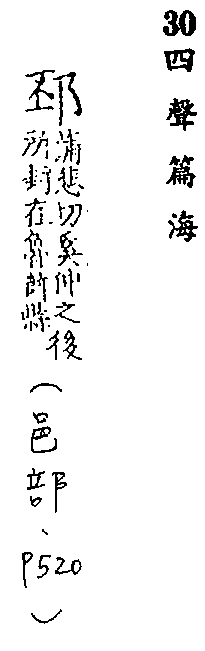 30四聲篇海
邳
蒲悲切奚仲之後
所封在魯薛縣
(邑部、P520)